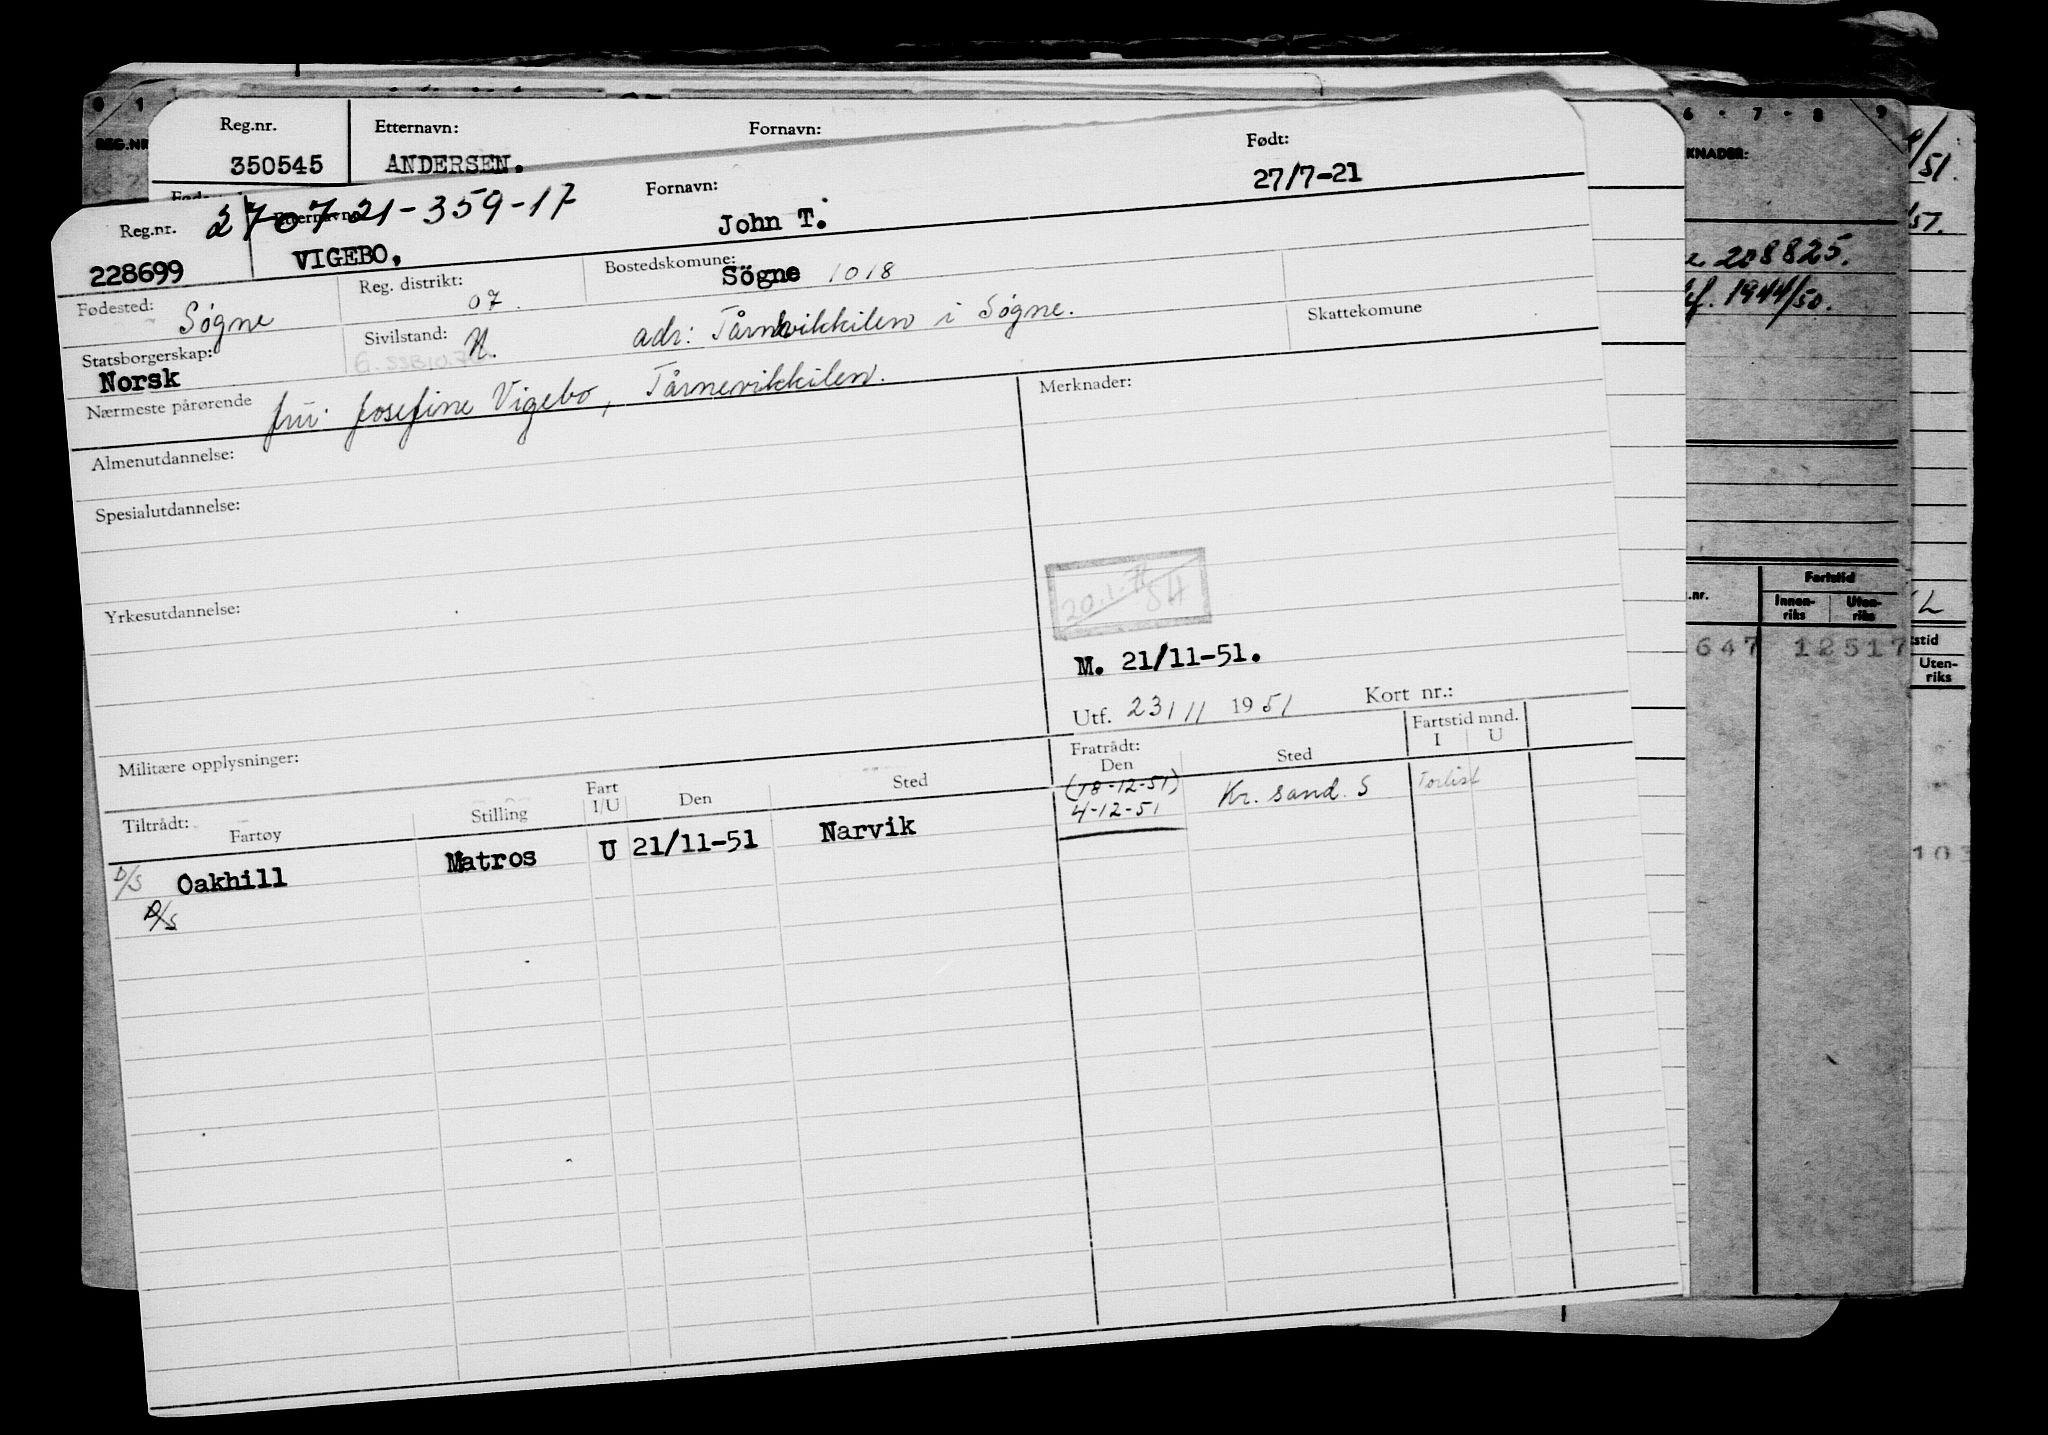 Reg.nr. Etternavn: Fornavn:
350545 ANDERSEN.
REG.NR
KNADER:
208825.
1944/50.
Fartstid
Innen-riks Uten-riks
647 12517
Uten-riks
27-07-21-359-17
Reg.nr. Etternavn: Fornavn: Født:
228699 VIGEBO. John T. 27/7-21
Fødested: Søgne Reg. distrikt: 07. Bostedskomune: Sögne 1018
Statsborgerskap: Norsk Sivilstand: adr: Tårnevikkilen i Søgne. Skattekomune
Nærmeste pårørende fru: Josefine Vigebo, Tårnevikkilen. Merknader:
Almenutdannelse:
Spesialutdannelse:
Yrkesutdannelse:
M. 21/11-51.
Utf. 23/11 1951 Kort nr.:
Militære opplysninger:
Tiltrådt: Fartøy Stilling Fart I/U Den Sted Fratrådt: Den Sted Fartstid mnd. I U
(18-12-51)
D/S Oakhill Matros U 21/11-51 Narvik 4-12-51 Kr. sand. S
D/S